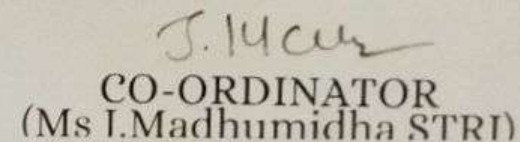 CO-ORDINATOR
(Ms J.Madhumidha STRI)